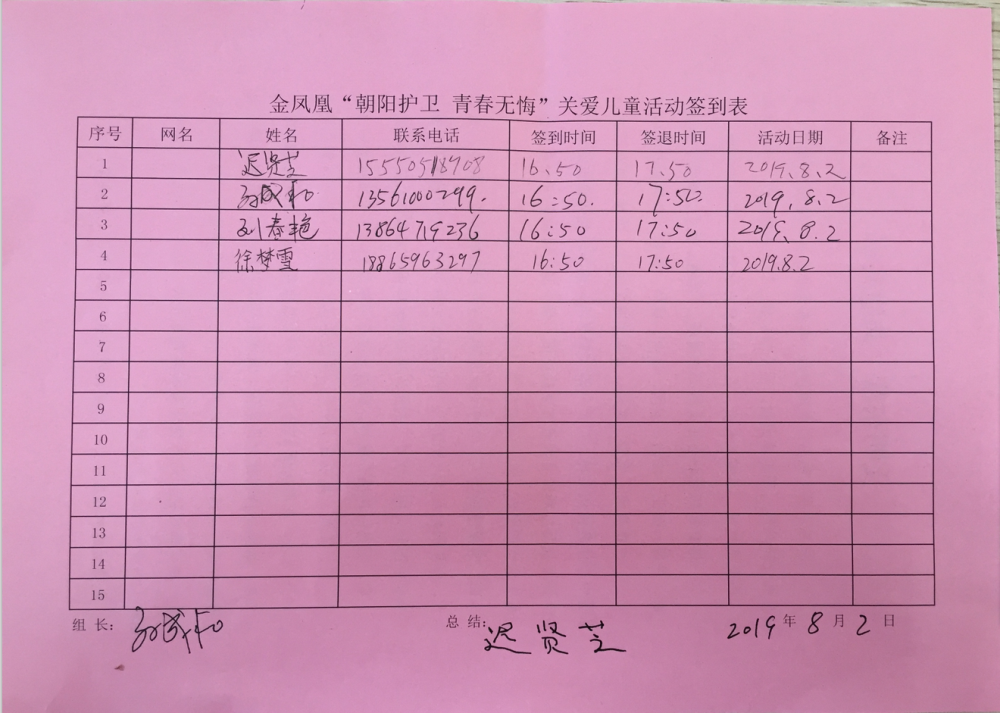 金凤凰“朝阳护卫 青春无悔”关爱儿童活动签到表
序号 网名 姓名 联系电话 签到时间 签退时间 活动日期 备注
1 迟贤芝 15550518908 16.50 17.50 2019.8.2
2 孙成和 13561000299. 16:50. 17:50. 2019.8.2
3 刘春艳 13864719236 16:50 17:50 2019.8.2
4 徐梦雪 18865963297 16:50 17:50 2019.8.2
5
6
7
8
9
10
11
12
13
14
15
组长: 孙成和 总结: 迟贤芝 2019年8月2日